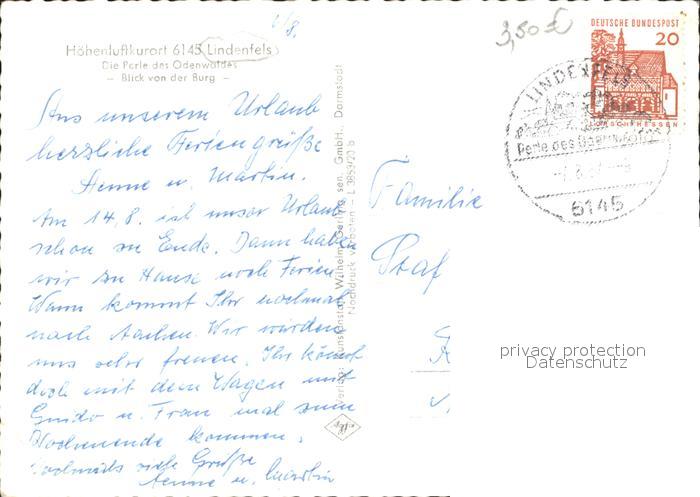 6/8.
3,50 €
Höhenluftkurort 6145 Lindenfels
Die Perle des Odenwaldes
– Blick von der Burg –
Aus unserem Urlaub
herzliche Feriengrüße
Henne u. Martin.
Am 14.8. ist unser Urlaub
schon zu Ende. Dann haben
wir zu Hause noch Ferien
Wann kommt Ihr nochmal
nach Aachen. Wir würden
uns sehr freuen. Ihr könnt
doch mit dem Wagen mit
Guido u. Frau mal zum
Wochenende kommen.
Nochmals viele Grüße
Henne u. Martin
Verlag: Kunstanstalt Wilhelm Gerling, sen. GmbH., Darmstadt
Nachdruck verboten – L 3859/20 b
DEUTSCHE BUNDESPOST
20
LORSCH/HESSEN
LINDENFELS
Perle des Odenwaldes
6145
Familie
Graf
privacy protection
Datenschutz